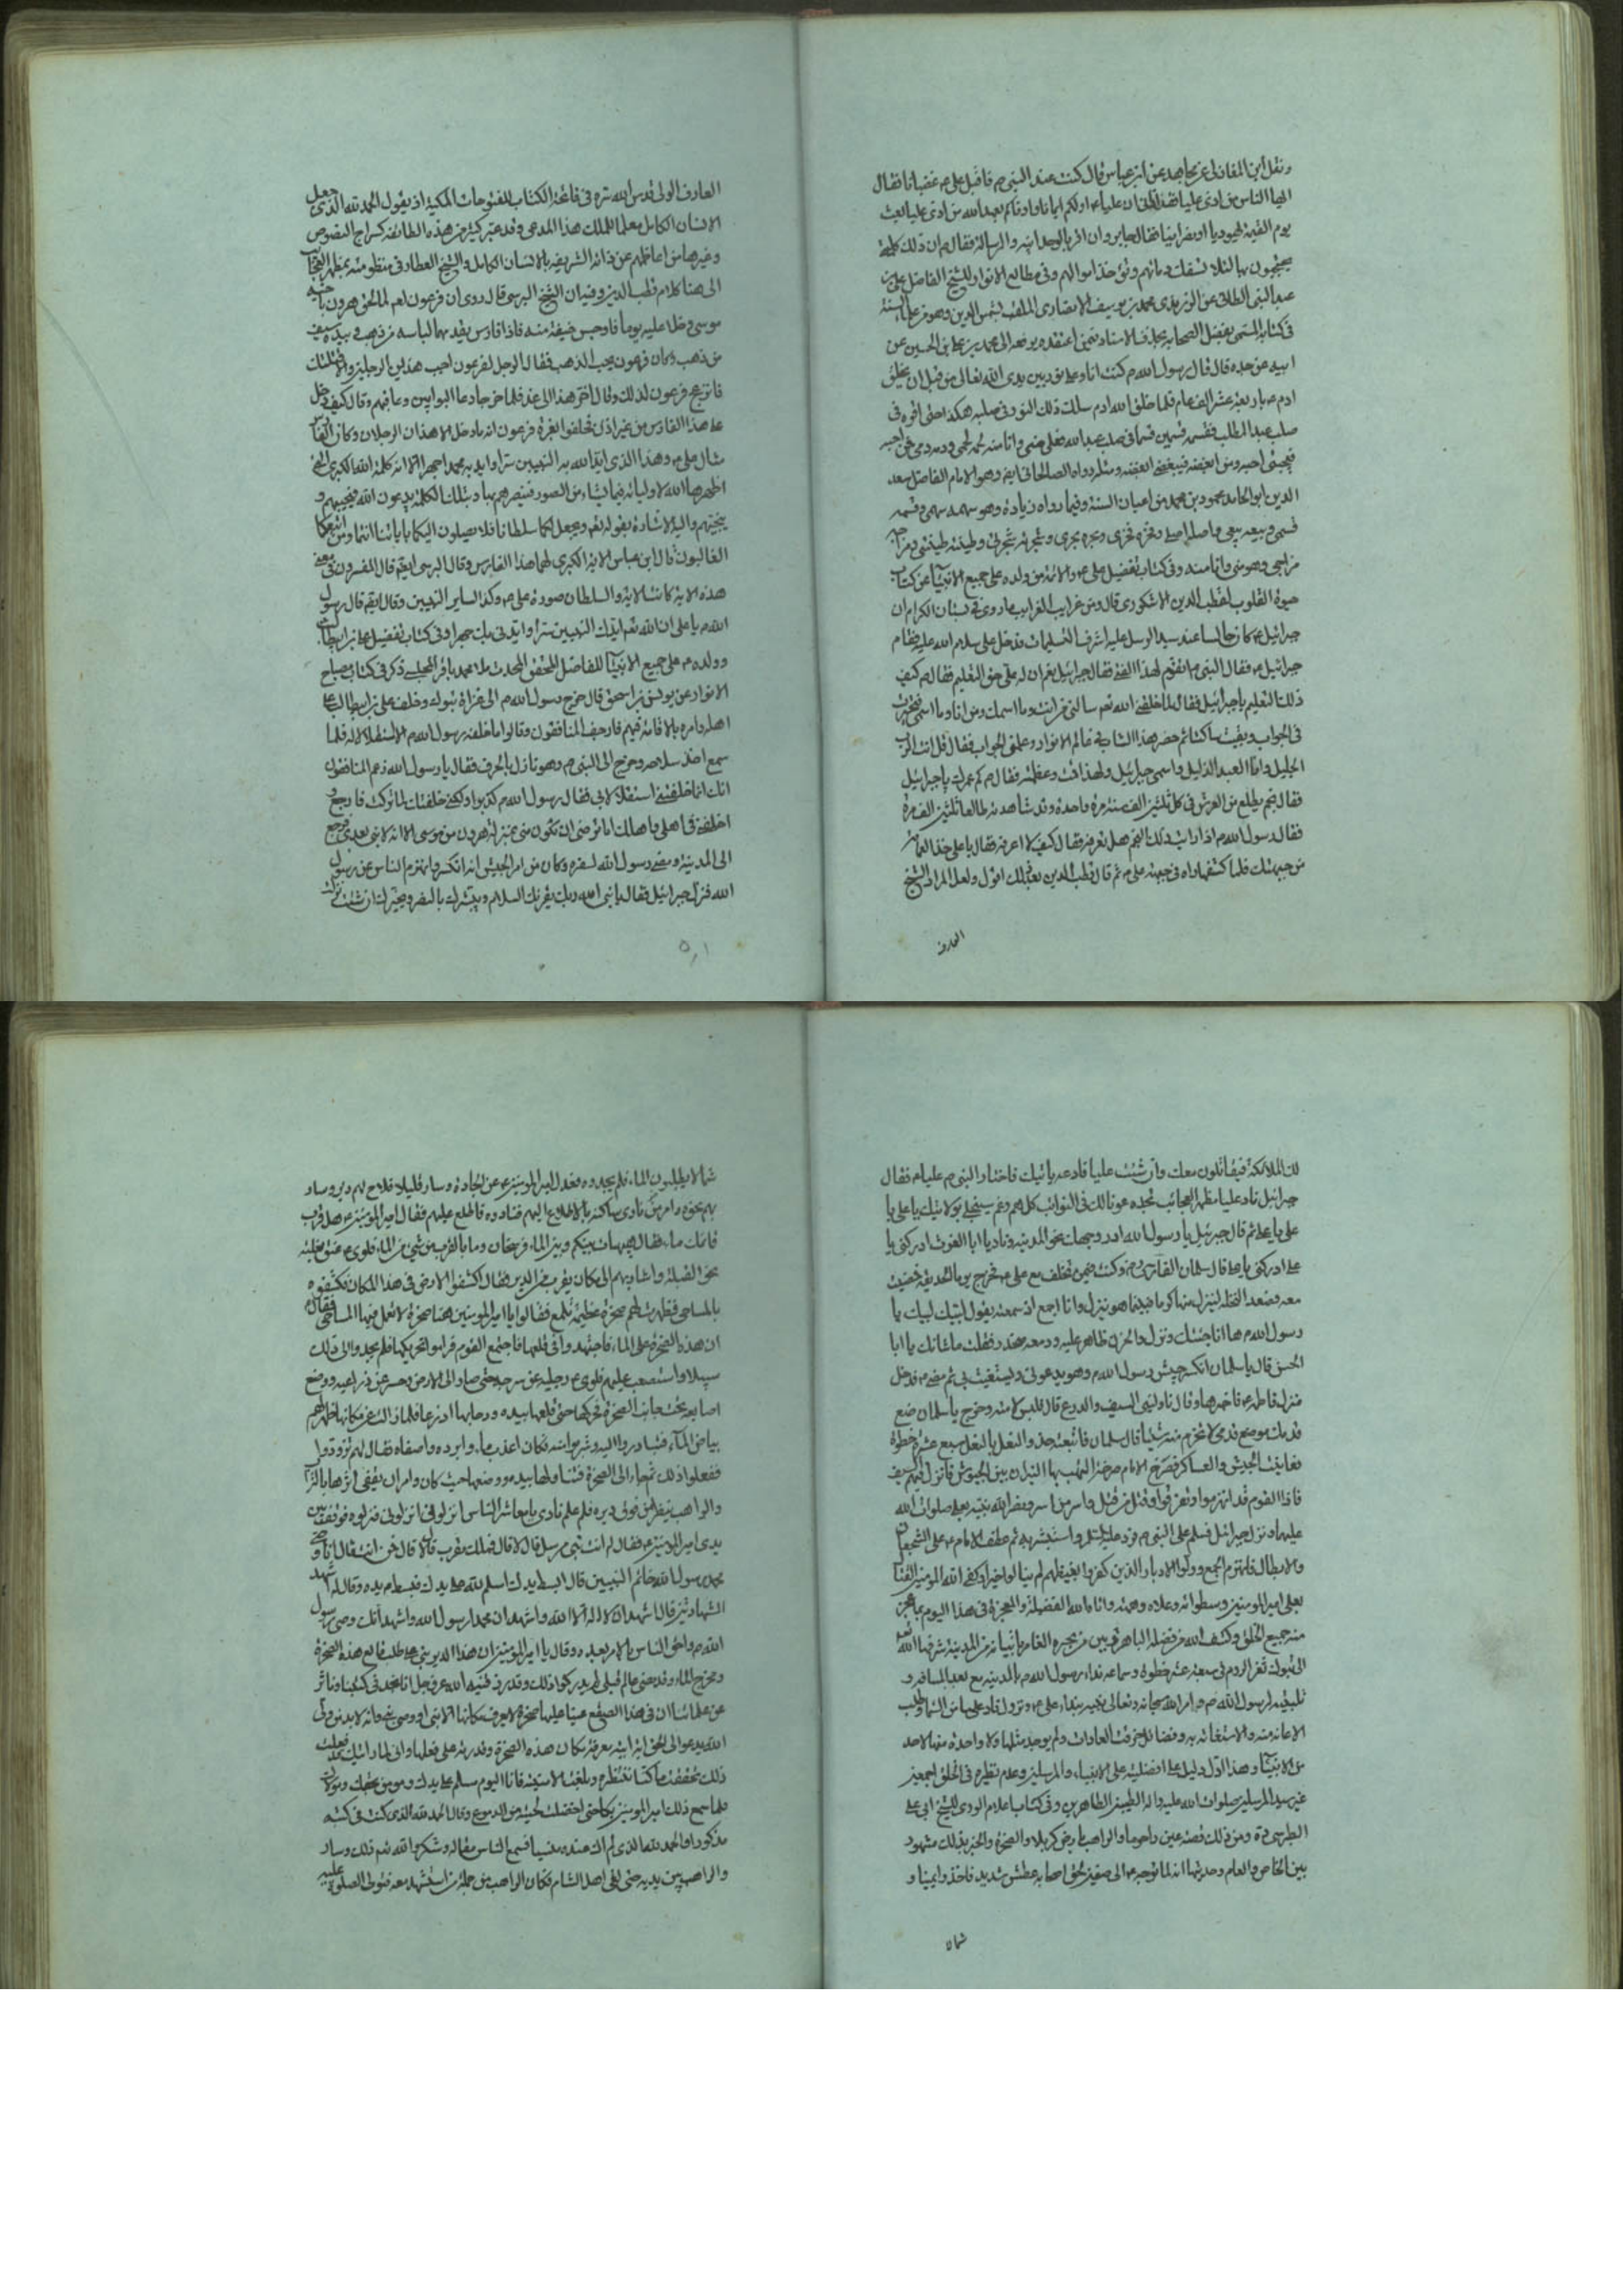 ونقل ابن المغازلى عن مجاهد عن ابن عباس قال كنت عند النبى ص فاقبل على ع غضبانا فقال
ايها الناس من اذى عليا فقد اذانى ان عليا ع اولكم ايمانا واوفاكم بعهد الله من اذى عليا بعث
يوم القيمة يهوديا او نصرانيا فقال جابر وان اقر بالوحدانيه والرسالة فقال ص ان ذلك كلمة
يحتجبون بها لئلا تسفك دمائهم وتؤخذ اموالهم وفى مطالع الانوار للشيخ الفاضل على بن
عبد النبى الطائى عن الزرندى محمد بن يوسف الانصارى الملقب بشمس الدين وهو من علماء السنة
فى كتابه المسمى بفضل الصحابه بحذف الاسناد يرفعه الى محمد بن على بن الحسين عن
ابيه عن جده قال قال رسول الله ص كنت انا وعلى نور بين يدى الله تعالى من قبل ان يخلق
ادم ع باربعة عشر الف عام فلما خلق الله ادم سلك ذلك النور فى صلبه هكذا حتى اقره فى
صلب عبد المطلب فقسمه قسمين قسما فى صلب عبد الله فعلى منى وانا منه لحمه لحمى ودمه دمى فمن احبه
فبحبى احبه ومن ابغضه فببغضى ابغضه ومثله رواه الصالحانى ايض وهو الامام الفاضل سعد
الدين ابو الحامد محمود بن محمد من اعيان السنة وفيما رواه زيادة وهو سهمه سهمى وقسمه
قسمى
مزاجى وهو منى وانا منه وفى كتاب تفضيل على ع والائمة من ولده على جميع الانبيآ عن كتاب
حيوة القلوب لقطب الدين الاشكورى قال ومن غرايب الغرايب ما روى فى لسان الكرام ان
جبرائيل ع كان جالسا عند سيد الرسل عليه اشرف التسليمات فدخل على سلام الله عليه فقام
جبرائيل ع فقال النبى ص اتقوم لهذا الفتى فقال جبرائيل نعم ان له على حق التعليم فقال ص كيف
ذلك التعليم يا جبرائيل فقال لما خلقنى الله تعم سالنى من انت وما اسمك ومن انا وما اسمى فتحيرت
فى الجواب وبقيت ساكتا ثم حضر هذا الشاب فى عالم الانوار وعلمنى الجواب فقال قل انت الرب
الجليل وانا العبد الذليل واسمى جبرائيل ولهذا قمت وعظمته فقال ص كم عمرك يا جبرائيل
فقال نجم يطلع من العرش فى كل ثلثين الف سنة مرة واحدة وقد شاهدته طالعا ثلثين الف مرة
فقال رسول الله ص اذا رايت ذلك النجم هل تعرفه فقال كيف لا اعرفه فقال يا على خذ العمامة
من جبهتك فلما كشفها راه فى جبهة على ع ثم قال قطب الدين بعد ذلك اقول ولعل المراد الشيخ
العارف
العارف الولى قدس الله سره فى فاتحة الكتاب للفتوحات المكية اذ يقول الحمد لله الذى جعل
الانسان الكامل معلما للملك هذا المدعى وقد عبر كثير من هذه الطائفه كسراج النصوص
وغيرها من اعاظمهم عن ذاته الشريفه بالانسان الكامل والشيخ العطار فى منظومته بمظهر العجايب
الى هنا كلام قطب الدين وفيه ان الشيخ البرسى قال روى ان فرعون لعنه لما لحق هرون باخيه
موسى دخلا عليه يوما فاوجس خيفة منه فاذا فارس يقدمهما لباسه من ذهب وبيده سيف
من ذهب وكان فرعون يحب الذهب فقال الرجل لفرعون اجب هذين الرجلين والا قتلتك
فانزعج فرعون لذلك وقال اخر هذا الى غد فلما خرجا دعا البوابين وعاقبهم وقال كيف دخل
على هذا الفارس من غير اذن فحلفوا بعزة فرعون انه ما دخل الا هذان الرجلان وكان الفارس
مثال على ع وهذا الذى ايد الله به النبيين سرا وايد به محمد ص جهرا الا انه كلمة الله الكبرى التى
اظهرها الله لاوليائه فيما يشاء من الصور فينصرهم بها وبتلك الكلمة يدعون الله فيجيبهم و
ينجيهم واليه الاشارة بقوله تعم ونجعل لكما سلطانا فلا يصلون اليكما باياتنا انتما ومن اتبعكما
الغالبون قال ابن عباس الاية الكبرى لهما هذا الفارس وقال البرسى ايض قال المفسرون فى معنى
هذه الاية كانت الاية والسلطان صورة على ع وكذا لساير النبيين وقال ايض قال رسول
الله ص يا على ان الله تعم ايد بك النبيين سرا وايدنى بك جهرا وفى كتاب تفضيل على بن ابيطالب
وولده ع على جميع الانبيآ للفاضل المحقق المحدث ملا محمد باقر المجلسى ذكر فى كتاب مصباح
الانوار عن يونس بن اسحق قال خرج رسول الله ص الى غزاة تبوك وخلف على بن ابيطالب على
اهله وامره بالاقامة فيهم فارجف المنافقون وقالوا ما خلفه رسول الله ص الا استقلالا له فلما
سمع اخذ سلاحه وخرج الى النبى ص وهو نازل بالجرف فقال يا رسول الله زعم المنافقون
انك انما خلفتنى استقلالا لى فقال رسول الله ص كذبوا ولكنى خلفتك لما تركت فارجع و
اخلفنى فى اهلى واهلك اما ترضى ان تكون منى بمنزلة هرون من موسى الا انه لا نبى بعدى فرجع
الى المدينة ومضى رسول الله لسفره وكان من امر الجيش انه انكسر وانهزم الناس عن رسول
الله فنزل جبرائيل فقال يا نبى الله ربك يقرئك السلام ويبشرك بالنصر ويخيرك ان شئت نزلت
لك الملائكة فيقاتلون معك وان شئت عليا فادعه ياتيك فاختار النبى ص عليا ع فقال
جبرائيل ناد عليا مظهر العجائب تجده عونا لك فى النوائب كل هم وغم سينجلى بولايتك يا على يا
على يا على ثم قال جبرئيل يا رسول الله ادر وجهك نحو المدينه وناد يا ابا الغوث ادركنى يا
على ادركنى يا على قال سلمان الفارسى رض وكنت فيمن تخلف مع على ع فخرج يوما الحديقه فمضيت
معه فصعد النخلة لينزل منها فبينما هو ينزل وانا اجمع اذ سمعته يقول لبيك لبيك يا
رسول الله ص ها انا جئتك ونزل والحزن ظاهر عليه ودمعه ينحدر فقلت ما شانك يا ابا
الحسن قال يا سلمان انكسر جيش رسول الله ص وهو يدعونى ويستغيث بى ثم مضى ع فدخل
منزل فاطمه ع فاخبرها وقال ناولينى السيف والدرع قال فلبس لامته وخرج يا سلمان ضع
قدمك موضع قدمى لا تخرم منه شيئا قال سلمان فاتبعته حذو النعل بالنعل سبع عشرة خطوة
فعاينت الجيش والعساكر فصرخ الامام صرخة التهب بها النيران بين الجيوش فانزل فيهم السيف
فاذا القوم قد انهزموا وتفرقوا وقتل من قتل واسر من اسر ونصر الله نبيه بعلى صلوات الله
عليهما ونزل جبرائيل فسلم على النبى ص فرد عليه السلم واستبشر به ثم عطف الامام ع على الشجعان
والابطال فانهزم الجمع وولوا الادبار الذين كفروا بغيظهم لم ينالوا خيرا وكفى الله المومنين القتال
بعلى امير المومنين وسطواته وعلاه وهمته وابان الله الفضيلة والمعجزة فى هذا اليوم بما عجز
منه جميع الخلق وكشف الله من فضله الباهر من المدينة شرفها الله تعم
الى تبوك ثغر الروم فى سبعة عشر خطوة وسماعه نداء رسول الله ص بالمدينه مع بعد المسافه و
تلبيته لرسول الله ص وامر الله سبحانه وتعالى نبيه بنداء على ع ونزول ناد عليا من السماء وطلب
الاعانة منه والاستغاثه به وفضائل خرقت العادات ولم يوجد مثلها ولا واحدة منها لاحد
من الانبيآء وهذا اول دليل على افضليته على الانبياء والمرسلين وعدم نظيره فى الخلق اجمعين
غير سيد المرسلين صلوات الله عليه واله الطيبين الطاهرين وفى كتاب اعلام الورى للشيخ ابى على
الطبرسى ره ومن ذلك قصة عين راحوما والراهب بارض كربلا والصخرة والخبر بذلك مشهور
بين الخاص والعام وحديثها انه لما توجه ع الى صفين لحق اصحابه عطش شديد فاخذوا يمينا و
شمالا
شمالا يطلبون الماء فلم يجدوه فعدل امير المومنين ع عن الجادة وسار قليلا فلاح لهم دير وسار
بهم نحوه وامر من نادى ساكنه بالاطلاع اليهم فنادوه فاطلع عليهم فقال امير المومنين ع هل قرب
قائمك ماء فقال هيهات بينكم وبين الماء فرسخان وما بالقرب من شيئ من الماء فلوى ع عنق بغلته
نحو القبلة واشار بهم الى مكان يقرب من الدير فقال اكشفوا الارض فى هذا المكان فكشفوه
بالمساحى فظهرت لهم صخرة عظيمة تلمع فقالوا يا امير المومنين هنا صخرة لا تعمل فيها المساحى فقال
ان هذه الصخرة على الماء فاجتهدوا فى قلعها فاجتمع القوم فراموا تحريكها فلم يجدوا الى ذلك
سبيلا واستصعب عليهم فلوى ع رجليه عن سرجه حتى صار الى الارض وحسر عن ذراعيه ووضع
اصابعه تحت جانب الصخرة فحركها حتى قلعها بيده ودحابها اذرعا فلما زالت عن مكانها ظهر لهم
بياض المآء فتبادروا اليه وشربوا منه فكان اعذب ماء وابرده واصفاه فقال لهم تزودوا
ففعلوا ذلك ثم جاء الى الصخرة فتناولها بيده ووضعها حيث كان وامر ان يعفى اثرها بالتراب
والراهب ينظر من فوق ديره فلما علم نادى يا معاشر الناس انزلونى انزلونى فنزلوه فوقف بين
يدى امير المومنين ع فقال له انت نبى مرسل قال لا قال فملك مقرب قال لا قال فمن انت فقال انا وصى
محمد رسول الله خاتم النبيين قال ابسط يدك اسلم لله على يدك فبسط ع يده وقال له اشهد
الشهادتين قال اشهد ان لا اله الا الله واشهد ان محمدا رسول الله واشهد انك وصى رسول
الله ص واحق الناس بالامر بعده وقال يا امير المومنين ان هذا الدير بنى على طلب قالع هذه الصخرة
ومخرج الماء وقد مضى عالم قبلى لم يدركوا ذلك وقد رزقنيه الله عز وجل انا نجد فى كتبنا وناثر
عن علمائنا ان فى هذا الصقع عينا عليها صخرة لا يعرف مكانها الا نبى او وصى نبى وانه لا بد من ولى
الله يدعو الى الحق ايته معرفة مكان هذه الصخرة وقدرته على قلعها وانى لما رايتك قد فعلت
ذلك تحققت ما كنا ننتظره وبلغت الامنية فانا اليوم مسلم على يدك ومومن بحقك ومولاك
فلما سمع ذلك امير المومنين بكا حتى اخضلت لحيته من الدموع وقال الحمد لله الذى كنت فى كتبه
مذكورا والحمد لله الذى لم اك عنده منسيا فسمع الناس مقاله وشكروا الله تعم ذلك وسار
والراهب بين يديه حتى لقى اهل الشام فكان الراهب من جملة من استشهد معه فتولى الصلوة عليه